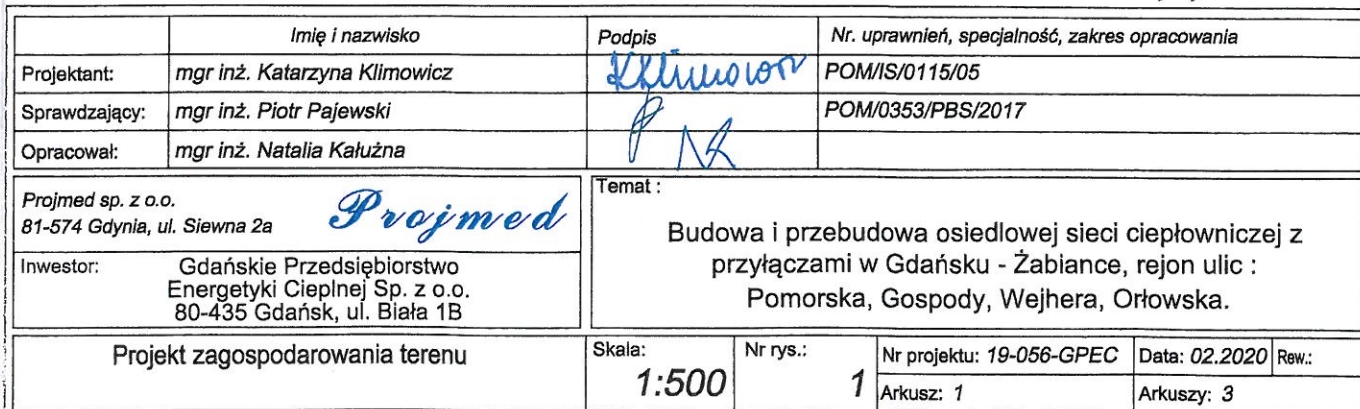 Imię i nazwisko Podpis Nr. uprawnień, specjalność, zakres opracowania
Projektant: mgr inż. Katarzyna Klimowicz KKlimowicz POM/IS/0115/05
Sprawdzający: mgr inż. Piotr Pajewski POM/0353/PBS/2017
Opracował: mgr inż. Natalia Kałużna
Projmed sp. z o.o.
81-574 Gdynia, ul. Siewna 2a
Projmed
Inwestor: Gdańskie Przedsiębiorstwo
Energetyki Cieplnej Sp. z o.o.
80-435 Gdańsk, ul. Biała 1B
Temat :
Budowa i przebudowa osiedlowej sieci ciepłowniczej z
przyłączami w Gdańsku - Żabiance, rejon ulic :
Pomorska, Gospody, Wejhera, Orłowska.
Projekt zagospodarowania terenu
Skala: 1:500
Nr rys.: 1
Nr projektu: 19-056-GPEC Data: 02.2020 Rew.:
Arkusz: 1 Arkuszy: 3